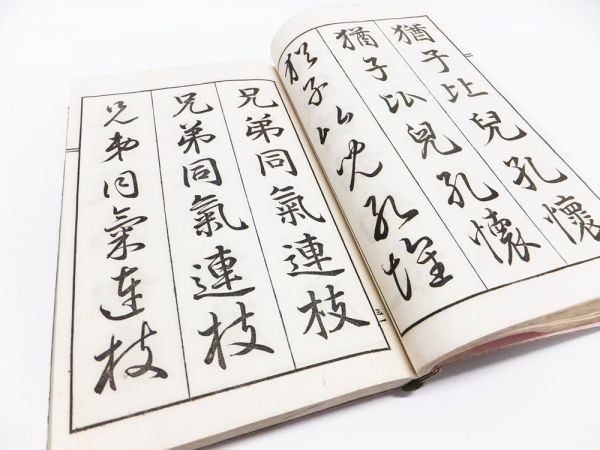 猶子比兒孔懷
猶子比兒孔懷
猶子比兒孔懷
兄弟同氣連枝
兄弟同氣連枝
兄弟同氣連枝